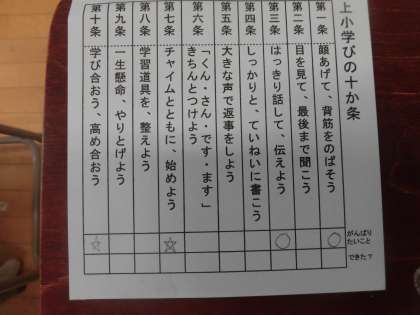 上小学びの十か条
第一条 顔あげて、背筋をのばそう
第二条 目を見て、最後まで聞こう
第三条 はっきり話して、伝えよう
第四条 しっかりと、ていねいに書こう
第五条 大きな声で返事をしよう
第六条 「くん・さん・です・ます」
きちんとつけよう
第七条 チャイムとともに、始めよう
第八条 学習道具を、整えよう
第九条 一生懸命、やりとげよう
第十条 学び合おう、高め合おう
がんばり
たいこと
できた？